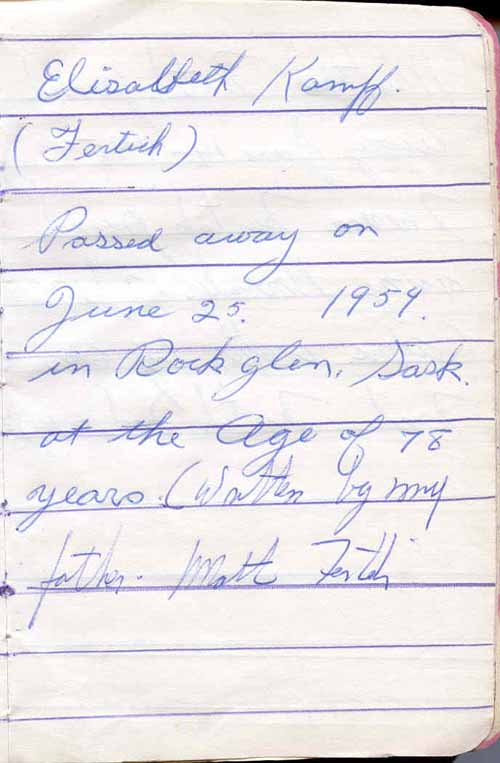 Elisabbeth Kampf.
(Fertich)
Passed away on
June 25. 1954.
in Rockglen, Sask.
at the Age of 78
years. (Written by my
father. Matt